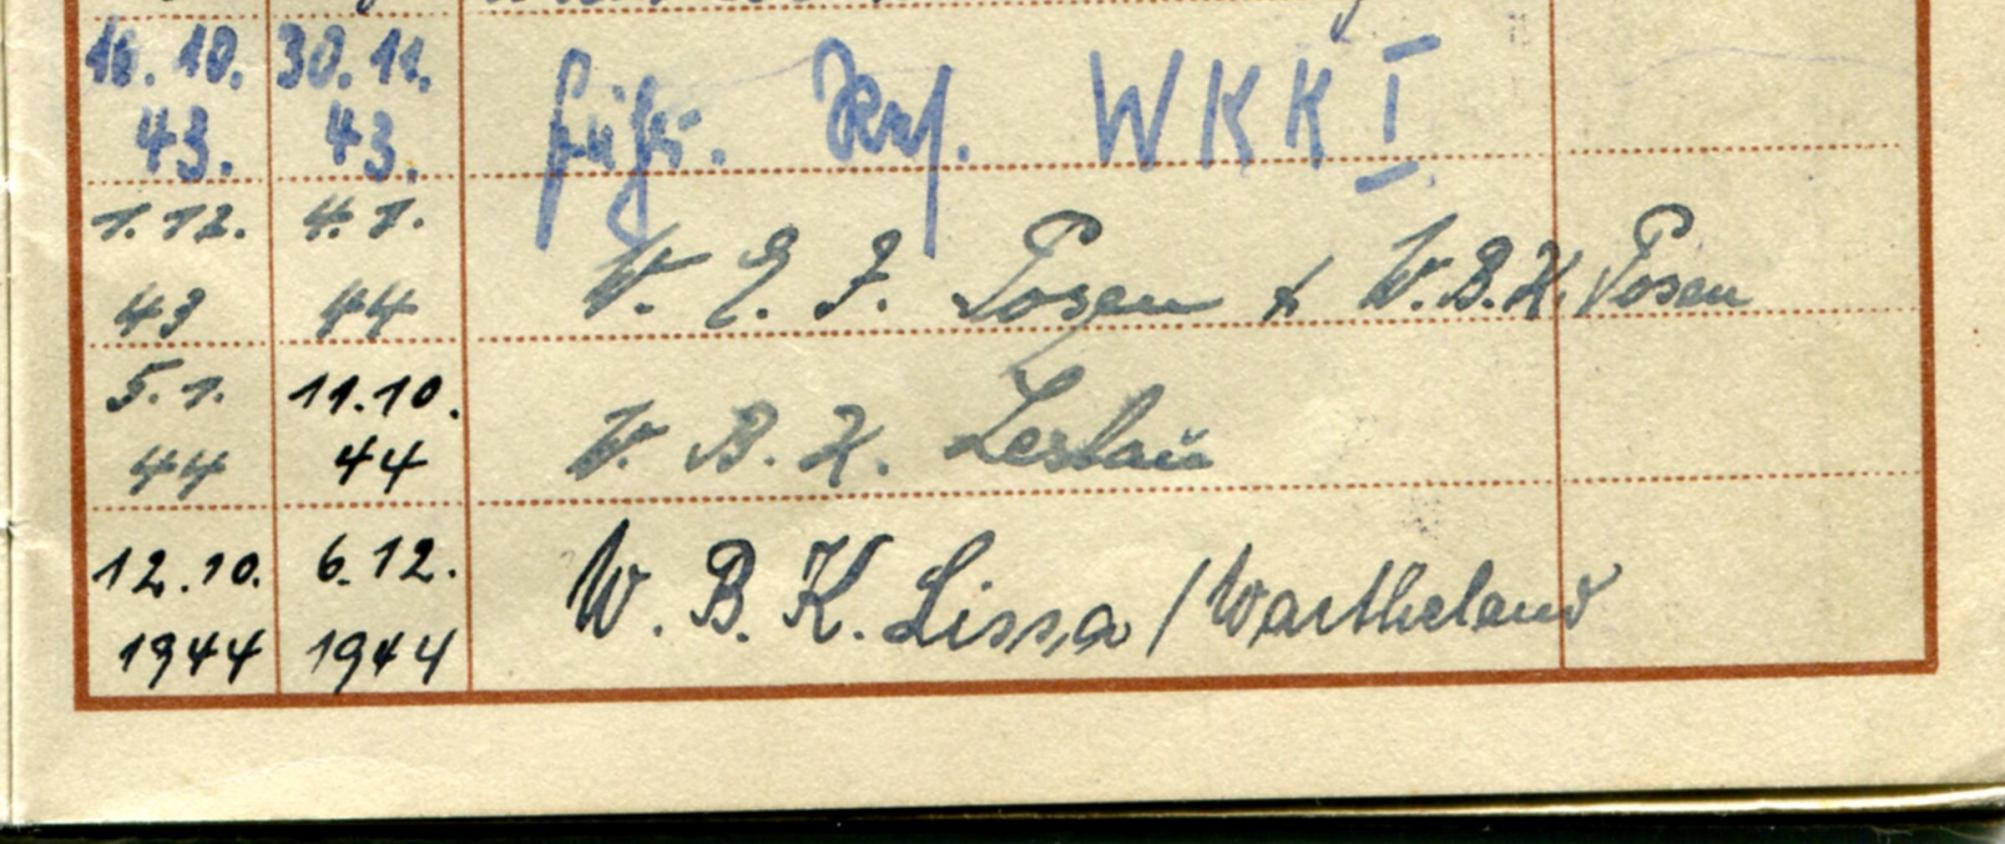 16.10. 30.11. Führ. Res. WKK I
43. 43.
1.12. 4.1. W. E. J. Posen & W.B.K. Posen
43 44
5.1. 11.10. W. B. K. Leslau
44 44
12.10. 6.12. W. B. K. Lissa / Wartheland
1944 1944